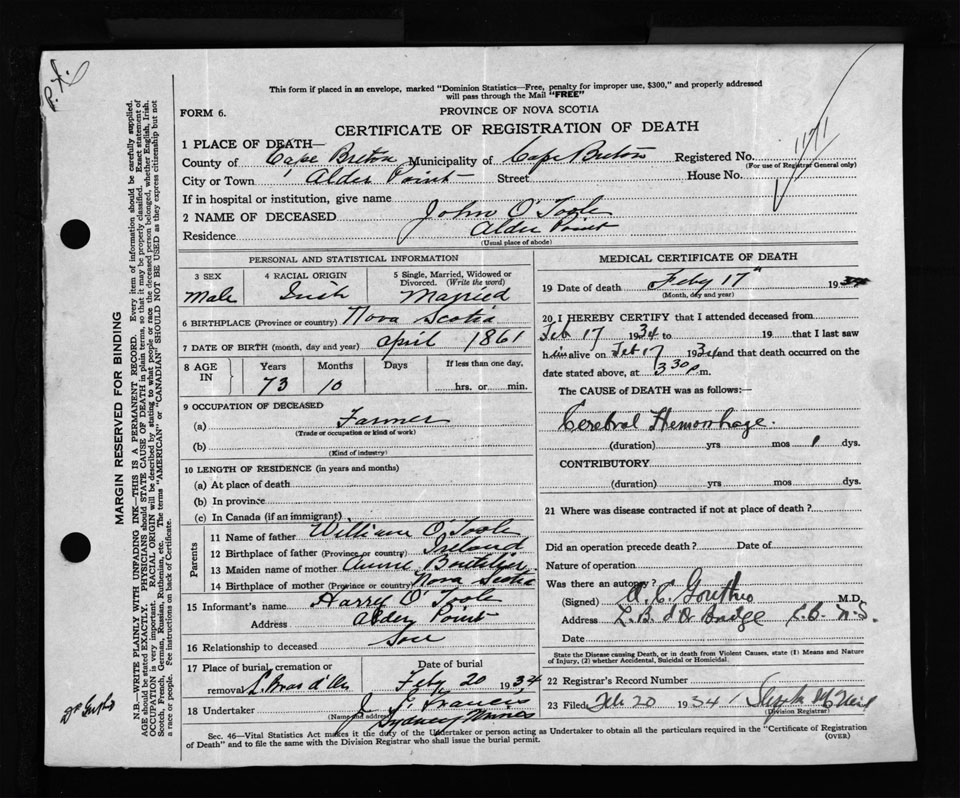 P. X.
This form if placed in an envelope, marked "Dominion Statistics—Free, penalty for improper use, $300," and properly addressed
will pass through the Mail "FREE"
FORM 6.
PROVINCE OF NOVA SCOTIA
CERTIFICATE OF REGISTRATION OF DEATH
1 PLACE OF DEATH—
County of Cape Breton Municipality of Cape Breton Registered No.
(For use of Registrar General only)
City or Town Alder Point Street House No.
If in hospital or institution, give name
2 NAME OF DECEASED John O'Toole
Residence Alder Point
(Usual place of abode)
PERSONAL AND STATISTICAL INFORMATION
3 SEX 4 RACIAL ORIGIN 5 Single, Married, Widowed or
Divorced. (Write the word)
Male Irish Married
6 BIRTHPLACE (Province or country) Nova Scotia
7 DATE OF BIRTH (month, day and year) April 1861
8 AGE IN Years Months Days If less than one day,
73 10 hrs. or min.
9 OCCUPATION OF DECEASED
(a) Farmer
(Trade or occupation or kind of work)
(b)
(Kind of industry)
10 LENGTH OF RESIDENCE (in years and months)
(a) At place of death
(b) In province
(c) In Canada (if an immigrant)
Parents
11 Name of father William O'Toole
12 Birthplace of father (Province or country) Ireland
13 Maiden name of mother Annie Boutilier
14 Birthplace of mother (Province or country) Nova Scotia
15 Informant's name Harry O'Toole
Address Alder Point
16 Relationship to deceased Son
17 Place of burial, cremation or Date of burial
removal L. Bras d'Or Feby 20 1934
18 Undertaker J. J. Francis
(Name and address) Sydney Mines
MEDICAL CERTIFICATE OF DEATH
19 Date of death Feby 17" 1934
(Month, day and year)
20 I HEREBY CERTIFY that I attended deceased from
Feb 17 1934 to 19 that I last saw
him alive on Feb 17 1934 and that death occurred on the
date stated above, at 3 30 p.m.
The CAUSE OF DEATH was as follows:—
Cerebral Hemorrhage.
(duration) yrs mos 1 dys.
CONTRIBUTORY
(duration) yrs mos dys.
21 Where was disease contracted if not at place of death?
Did an operation precede death? Date of
Nature of operation
Was there an autopsy?
(Signed) M.D.
Address L. B. d'Or Bridge C.B. N.S.
Date
State the Disease causing Death, or in death from Violent Causes, state (1) Means and Nature
of Injury, (2) whether Accidental, Suicidal or Homicidal.
22 Registrar's Record Number
23 Filed Feb 20 1934
(Division Registrar)
Sec. 46—Vital Statistics Act makes it the duty of the Undertaker or person acting as Undertaker to obtain all the particulars required in the "Certificate of Registration
of Death" and to file the same with the Division Registrar who shall issue the burial permit.
(OVER)
MARGIN RESERVED FOR BINDING
N.B.—WRITE PLAINLY WITH UNFADING INK—THIS IS A PERMANENT RECORD. Every item of information should be carefully supplied.
AGE should be stated EXACTLY. PHYSICIANS should STATE CAUSE OF DEATH in plain terms, so that it may be properly classified. Exact statement of
OCCUPATION is very important. RACIAL ORIGIN will be described by stating to what people or race the deceased person belonged, whether English, Irish,
Scotch, French, German, Russian, Ruthenian, etc. The terms "AMERICAN" or "CANADIAN" SHOULD NOT BE USED as they express citizenship but not
a race or people. See instructions on back of Certificate.